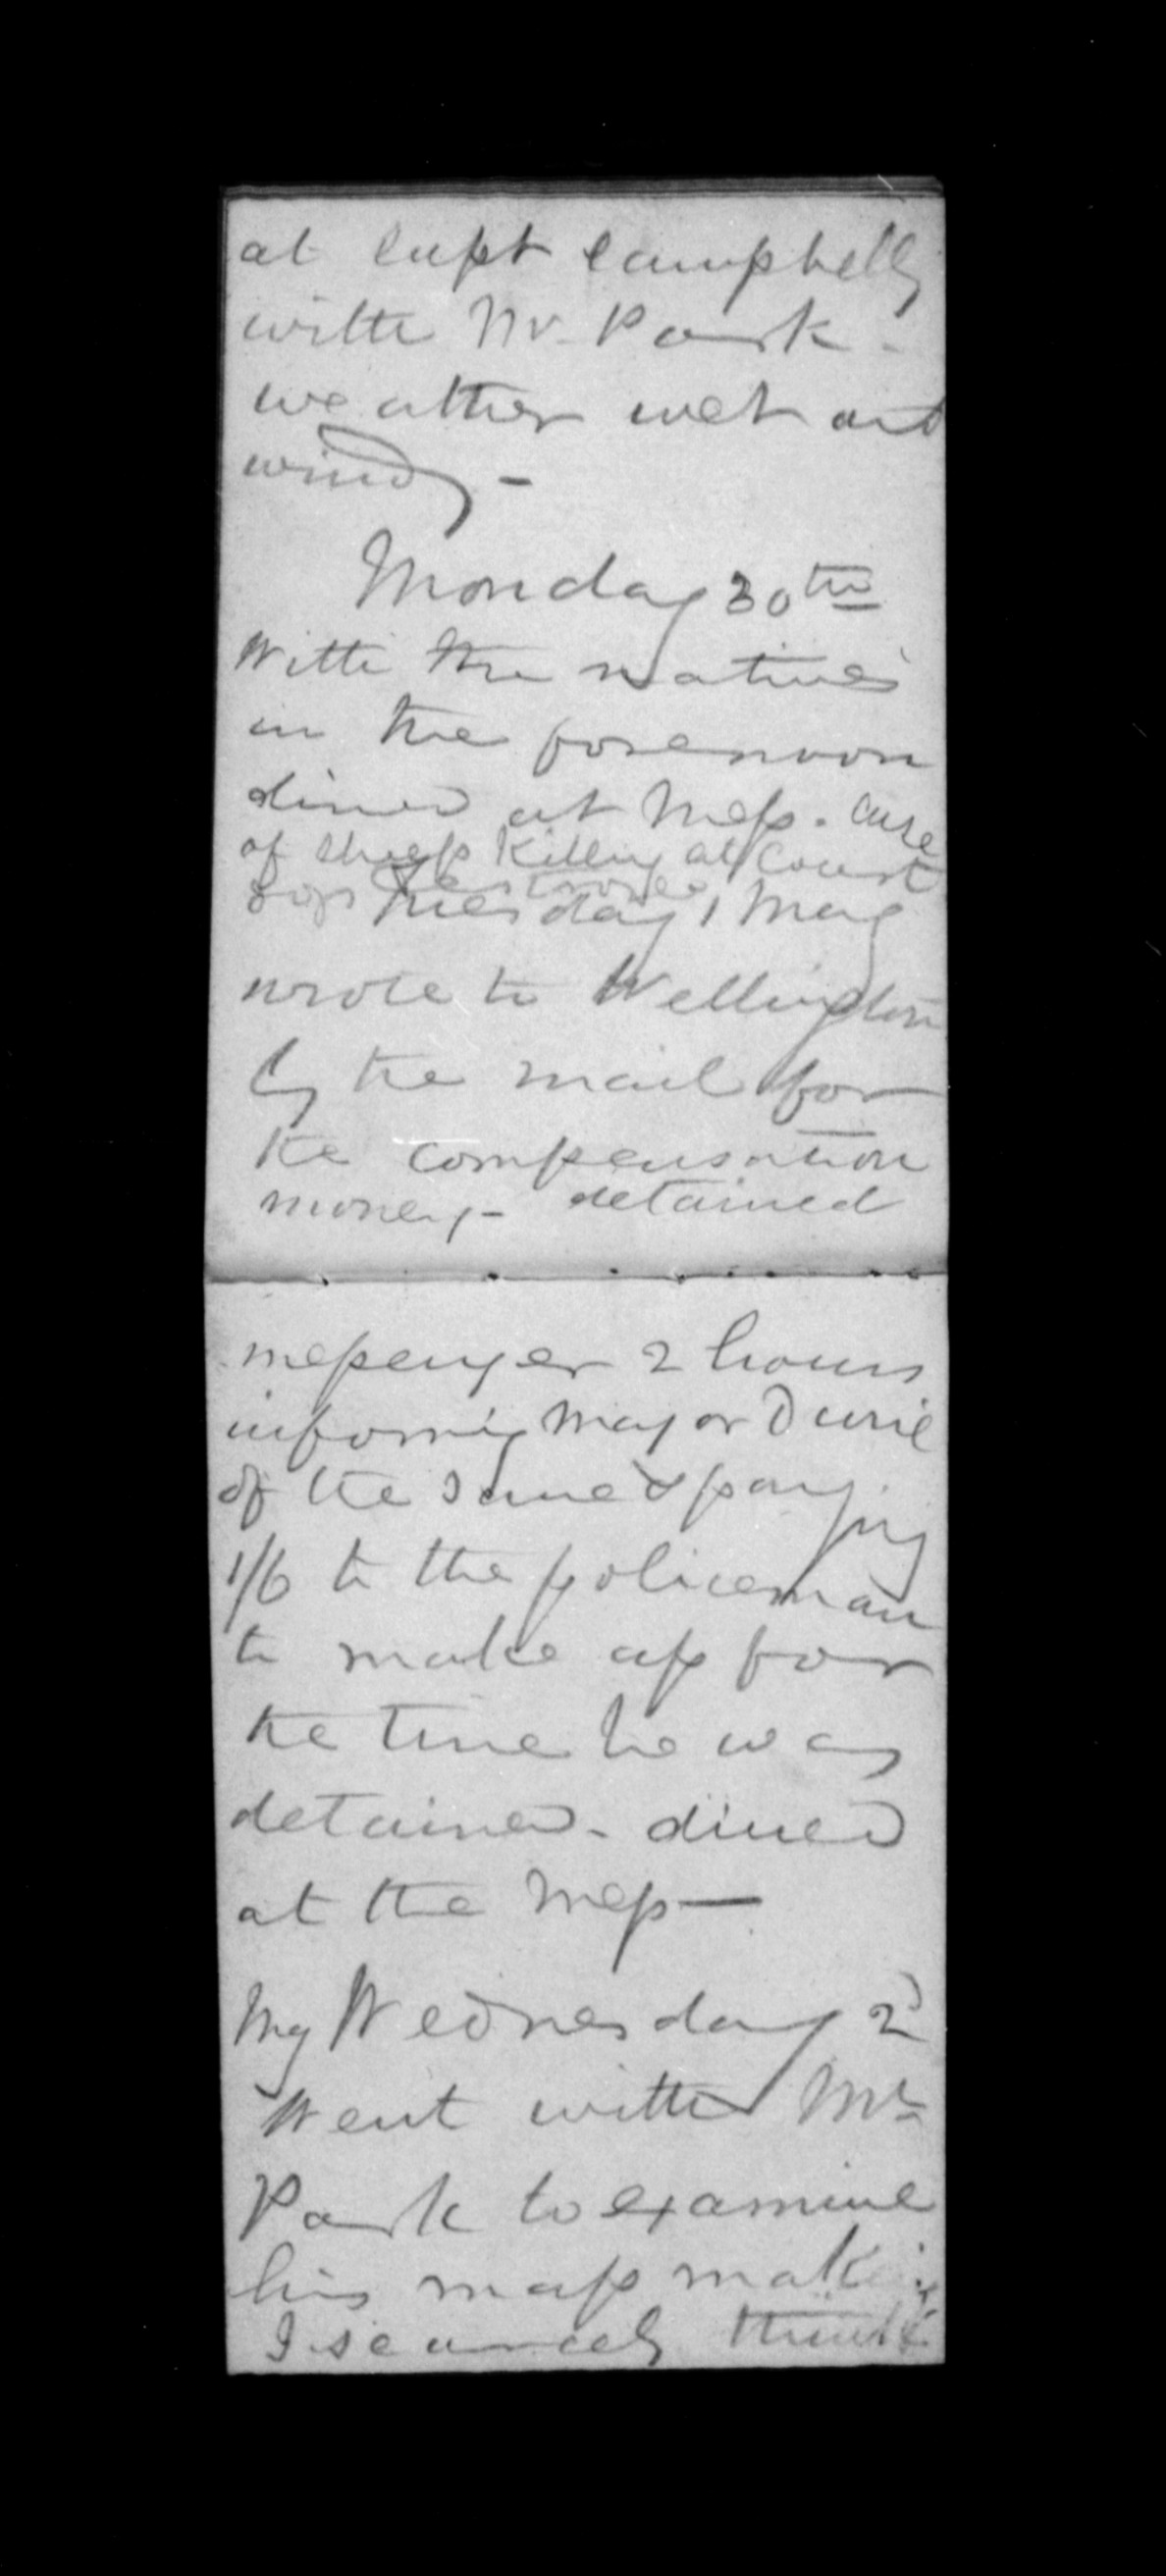 at Capt Campbells
with Mr Park -
weather wet and
windy -
Monday 30th
With the natives
in the forenoon
dined at Mess. Case
of sheep killing at Court
dogs destroyed
Tuesday 1 May
wrote to Wellington
by the mail for
the compensation
money - detained
messenger 2 hours
informg Major Durie
of the same & paying
1/6 to the policeman
to make up for
the time he was
detained - dined
at the Mess —
My Wednesday 2d
Went with Mr
Park to examine
his map mak
I scarcely think